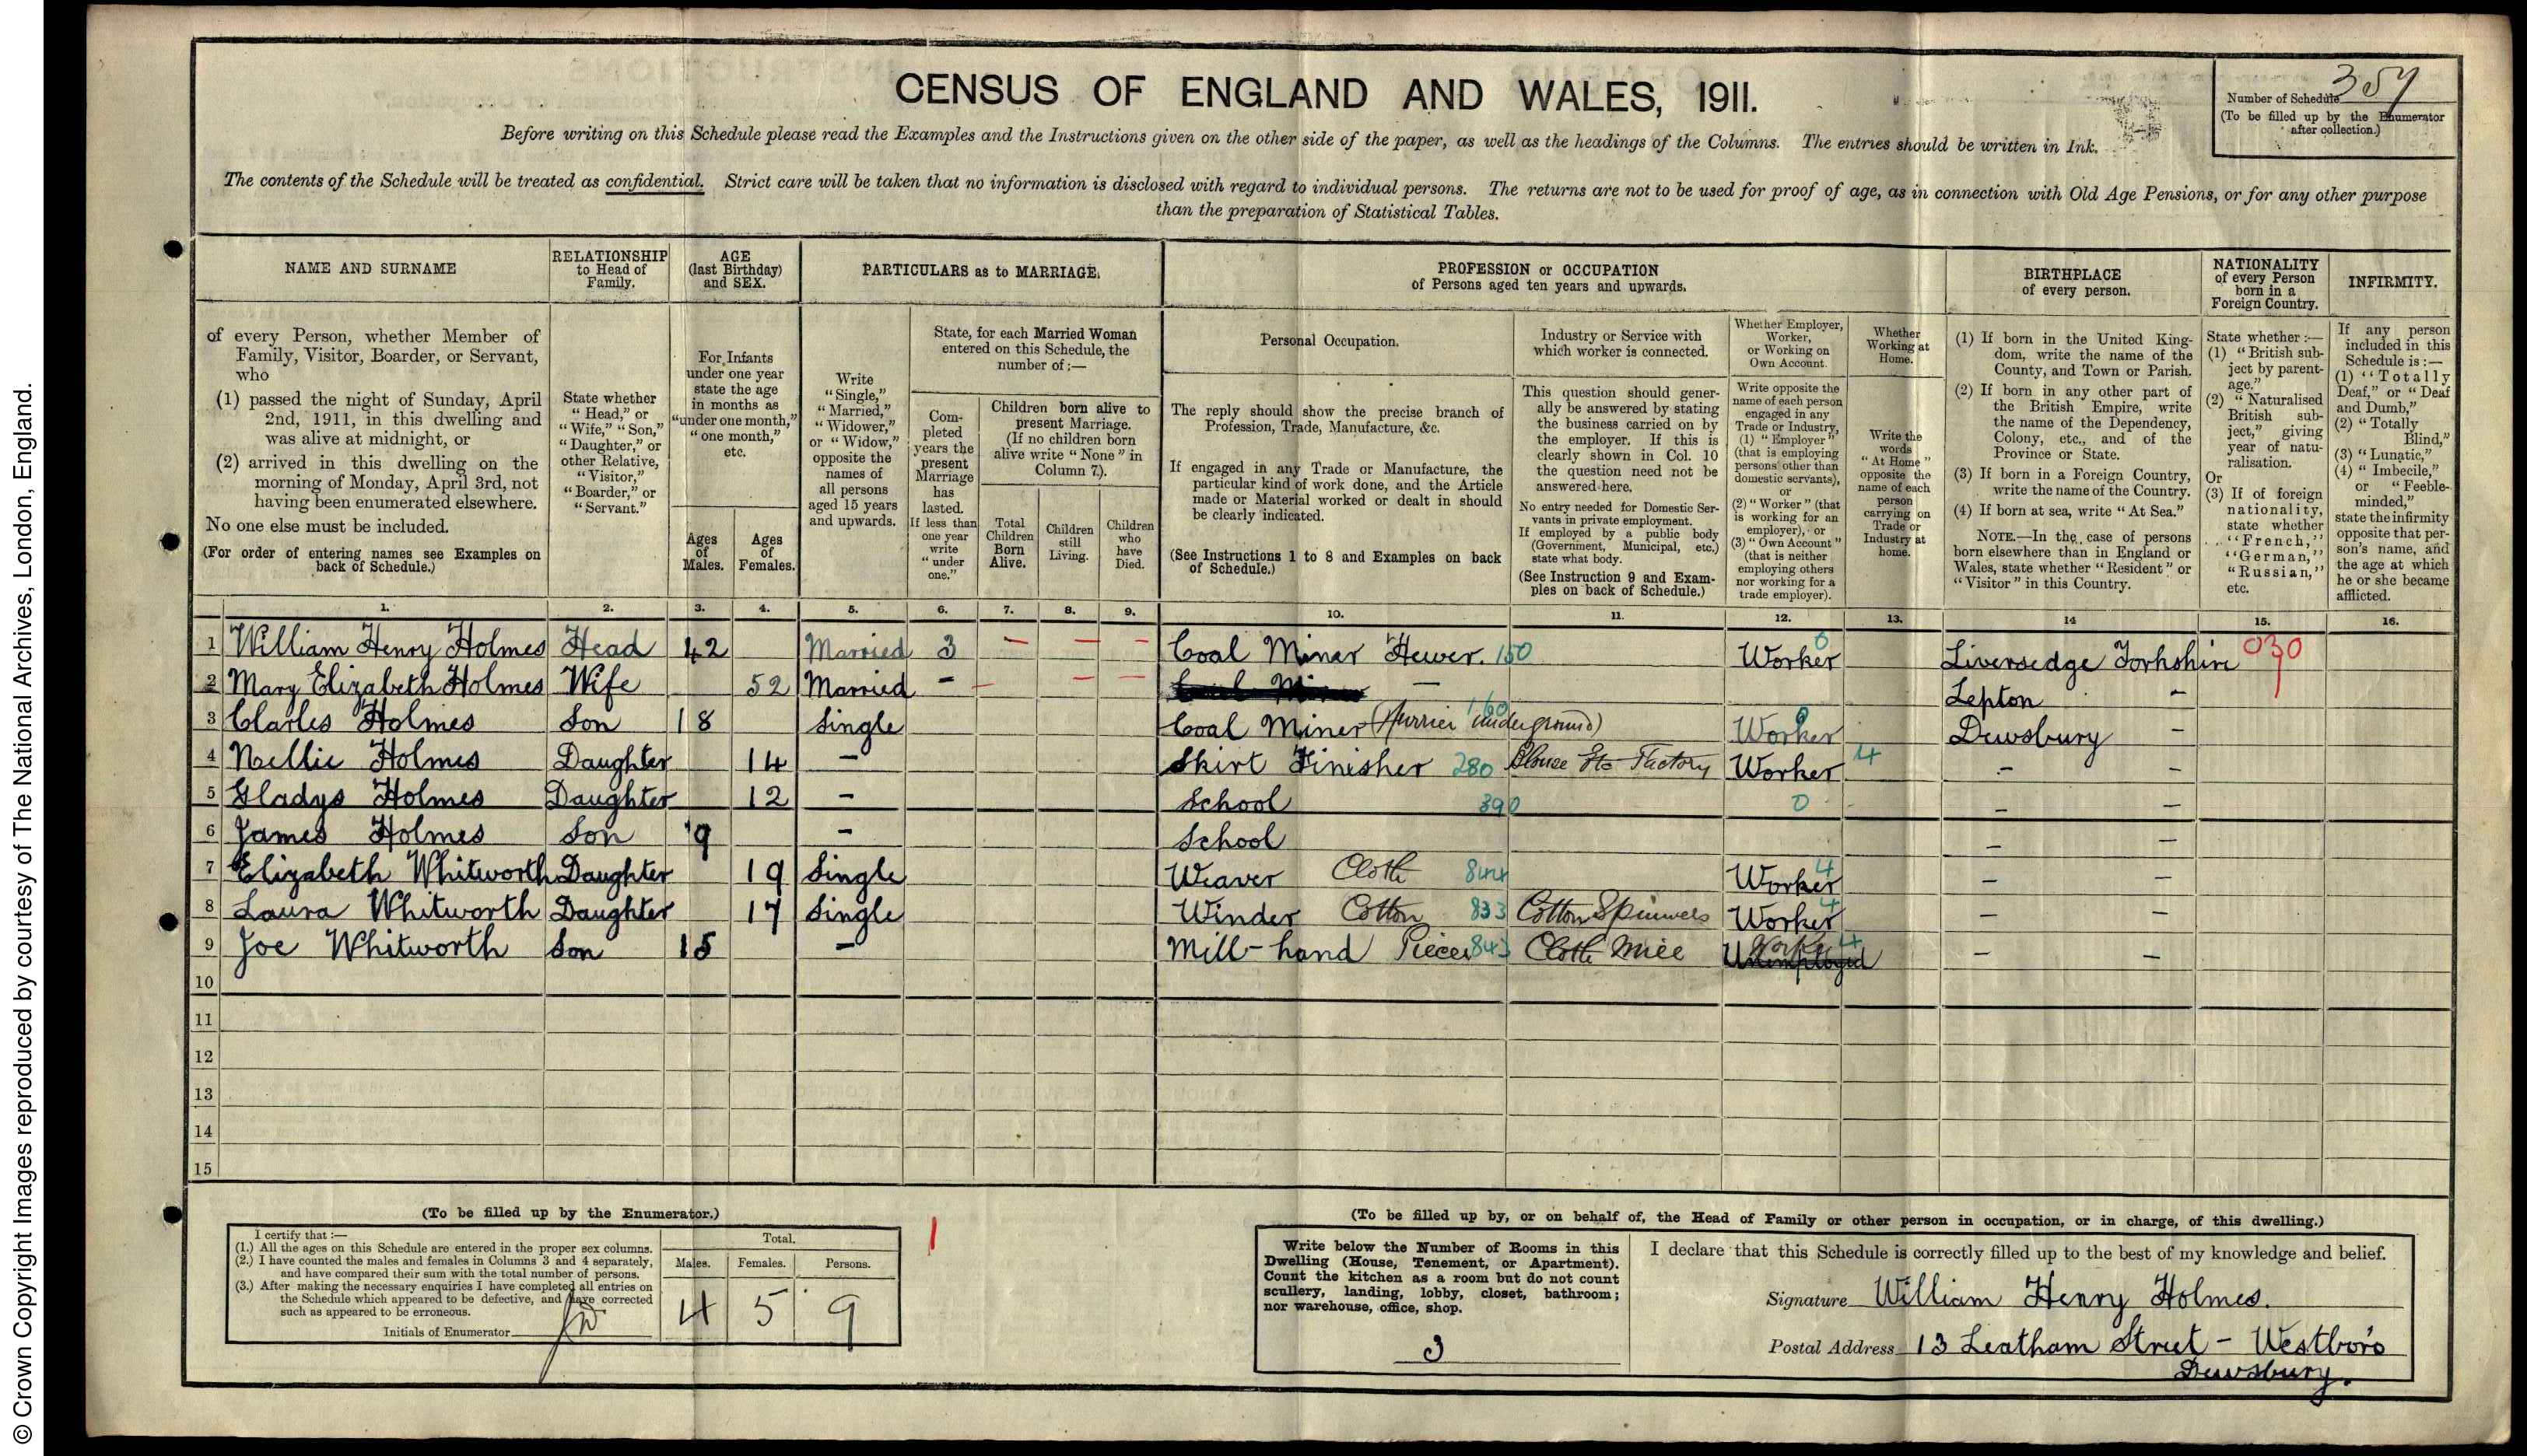 © Crown Copyright Images reproduced by courtesy of The National Archives, London, England.
CENSUS OF ENGLAND AND WALES, 1911.
Number of Schedule 357
(To be filled up by the Enumerator
after collection.)
Before writing on this Schedule please read the Examples and the Instructions given on the other side of the paper, as well as the headings of the Columns. The entries should be written in Ink.
The contents of the Schedule will be treated as confidential. Strict care will be taken that no information is disclosed with regard to individual persons. The returns are not to be used for proof of age, as in connection with Old Age Pensions, or for any other purpose
than the preparation of Statistical Tables.
NAME AND SURNAME
of every Person, whether Member of
Family, Visitor, Boarder, or Servant,
who
(1) passed the night of Sunday, April
2nd, 1911, in this dwelling and
was alive at midnight, or
(2) arrived in this dwelling on the
morning of Monday, April 3rd, not
having been enumerated elsewhere.
No one else must be included.
(For order of entering names see Examples on
back of Schedule.)
RELATIONSHIP
to Head of
Family.
State whether
"Head," or
"Wife," "Son,"
"Daughter," or
other Relative,
"Visitor,"
"Boarder," or
"Servant."
AGE
(last Birthday)
and SEX.
For Infants
under one year
state the age
in months as
"under one month,"
"one month,"
etc.
Ages
of
Males.
Ages
of
Females.
PARTICULARS as to MARRIAGE.
Write
"Single,"
"Married,"
"Widower,"
or "Widow,"
opposite the
names of
all persons
aged 15 years
and upwards.
State, for each Married Woman
entered on this Schedule, the
number of:—
Com-
pleted
years the
present
Marriage
has
lasted.
If less than
one year
write
"under
one."
Children born alive to
present Marriage.
(If no children born
alive write "None" in
Column 7.).
Total
Children
Born
Alive.
Children
still
Living.
Children
who
have
Died.
PROFESSION or OCCUPATION
of Persons aged ten years and upwards.
Personal Occupation.
The reply should show the precise branch of
Profession, Trade, Manufacture, &c.
If engaged in any Trade or Manufacture, the
particular kind of work done, and the Article
made or Material worked or dealt in should
be clearly indicated.
(See Instructions 1 to 8 and Examples on back
of Schedule.)
Industry or Service with
which worker is connected.
This question should gener-
ally be answered by stating
the business carried on by
the employer. If this is
clearly shown in Col. 10
the question need not be
answered here.
No entry needed for Domestic Ser-
vants in private employment.
If employed by a public body
(Government, Municipal, etc.)
state what body.
(See Instruction 9 and Exam-
ples on back of Schedule.)
Whether Employer,
Worker,
or Working on
Own Account.
Write opposite the
name of each person
engaged in any
Trade or Industry,
(1) "Employer"
(that is employing
persons other than
domestic servants),
or
(2) "Worker" (that
is working for an
employer), or
(3) "Own Account"
(that is neither
employing others
nor working for a
trade employer).
Whether
Working at
Home.
Write the
words
"At Home"
opposite the
name of each
person
carrying on
Trade or
Industry at
home.
BIRTHPLACE
of every person.
(1) If born in the United King-
dom, write the name of the
County, and Town or Parish.
(2) If born in any other part of
the British Empire, write
the name of the Dependency,
Colony, etc., and of the
Province or State.
(3) If born in a Foreign Country,
write the name of the Country.
(4) If born at sea, write "At Sea."
NOTE.—In the case of persons
born elsewhere than in England or
Wales, state whether "Resident" or
"Visitor" in this Country.
NATIONALITY
of every Person
born in a
Foreign Country.
State whether:—
(1) "British sub-
ject by parent-
age."
(2) "Naturalised
British sub-
ject," giving
year of natu-
ralisation.
Or
(3) If of foreign
nationality,
state whether
"French,"
"German,"
"Russian,"
etc.
INFIRMITY.
If any person
included in this
Schedule is:—
(1) "Totally
Deaf," or "Deaf
and Dumb,"
(2) "Totally
Blind,"
(3) "Lunatic,"
(4) "Imbecile,"
or "Feeble-
minded,"
state the infirmity
opposite that per-
son's name, and
the age at which
he or she became
afflicted.
1. 2. 3. 4. 5. 6. 7. 8. 9. 10. 11. 12. 13. 14 15. 16.
1 William Henry Holmes Head 42 Married 3 — — — Coal Miner Hewer. 150 Worker 0 Liversedge Yorkshire 030
2 Mary Elizabeth Holmes Wife 52 Married - — — — Coal Miner — Lepton -
3 Charles Holmes Son 18 Single Coal Miner (Hurrier underground) 160 Worker 0 Dewsbury -
4 Nellie Holmes Daughter 14 — Skirt Finisher 280 Blouse Etc Factory Worker 4 - -
5 Gladys Holmes Daughter 12 — School 390 0 - -
6 James Holmes Son 9 — School - -
7 Elizabeth Whitworth Daughter 19 Single Weaver Cloth 844 Worker 4 - -
8 Laura Whitworth Daughter 17 Single Winder Cotton 833 Cotton Spinners Worker 4 - -
9 Joe Whitworth Son 15 — Mill-hand Piecer 843 Cloth Mill Unemployed Worker 4 - -
10
11
12
13
14
15
(To be filled up by the Enumerator.)
I certify that:—
(1.) All the ages on this Schedule are entered in the proper sex columns.
(2.) I have counted the males and females in Columns 3 and 4 separately,
and have compared their sum with the total number of persons.
(3.) After making the necessary enquiries I have completed all entries on
the Schedule which appeared to be defective, and have corrected
such as appeared to be erroneous.
Initials of Enumerator
Total.
Males. Females. Persons.
4 5 9
1
(To be filled up by, or on behalf of, the Head of Family or other person in occupation, or in charge, of this dwelling.)
Write below the Number of Rooms in this
Dwelling (House, Tenement, or Apartment).
Count the kitchen as a room but do not count
scullery, landing, lobby, closet, bathroom;
nor warehouse, office, shop.
3
I declare that this Schedule is correctly filled up to the best of my knowledge and belief.
Signature William Henry Holmes.
Postal Address 13 Leatham Street - Westboro
Dewsbury.